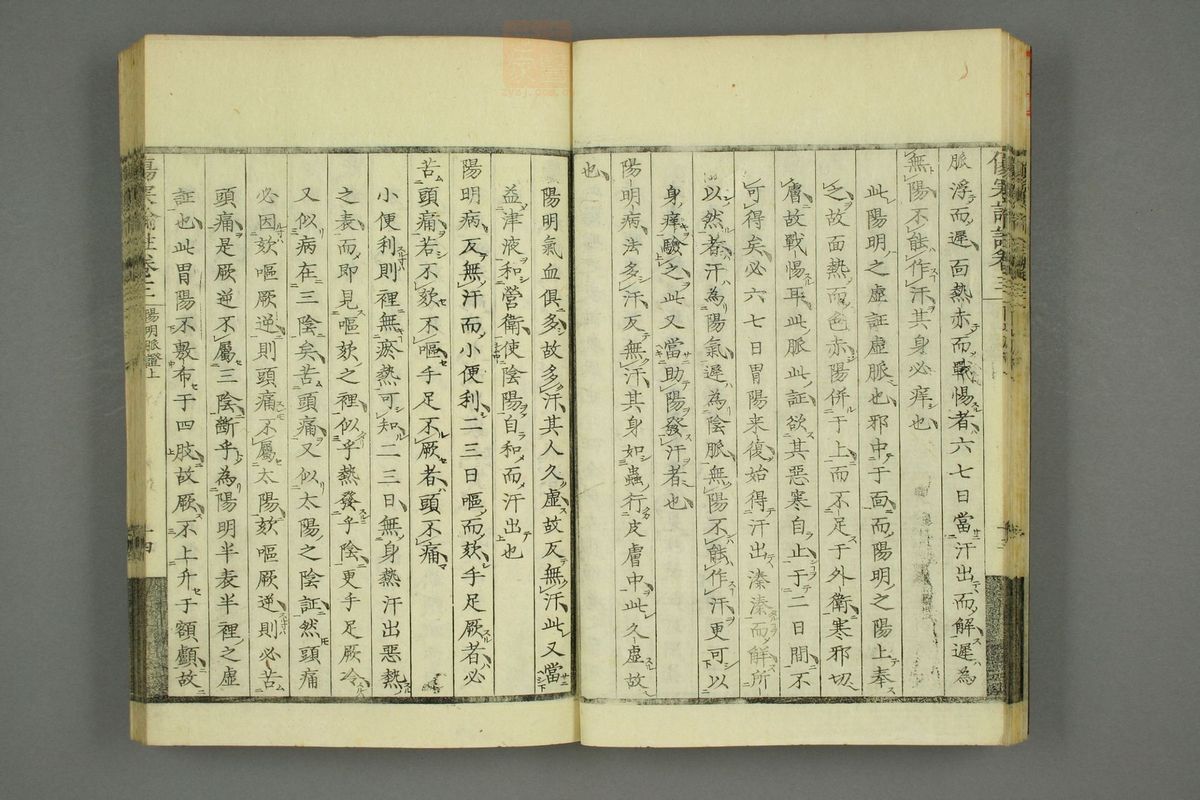 脈浮而遲面熱赤而戰惕者六七日當汗出而解遲為
無陽不能作汗其身必痒也
此陽明之虛証虛脈也邪中于面而陽明之陽上奉
之故面熱而色赤陽併于上而不足于外衛寒邪切
膚故戰惕耳此脈此証欲其惡寒自止于二日間不
可得矣必六七日胃陽来復始得汗出溱溱而解所
以然者汗為陽氣遲為陰脈無陽不能作汗更可以
身痒驗之此又當助陽發汗者也
陽明病法多汗反無汗其身如蟲行皮膚中此久虛故
也
陽明氣血俱多故多汗其人久虛故反無汗此又當
益津液和營衛使陰陽自和而汗出也
陽明病反無汗而小便利二三日嘔而欬手足厥者必
苦頭痛若不欬不嘔手足不厥者頭不痛
小便利則裡無瘀熱可知二三日無身熱汗出惡熱
之表而即見嘔欬之裡似乎熱發乎陰更手足厥冷
又似病在三陰矣苦頭痛又似太陽之陰証然頭痛
必因欬嘔厥逆則頭痛不屬太陽欬嘔厥逆則必苦
頭痛是厥逆不屬三陰斷乎為陽明半表半裡之虛
証也此胃陽不敷布于四肢故厥不上升于額顱故
傷寒論註卷二 陽明脈證上
十四